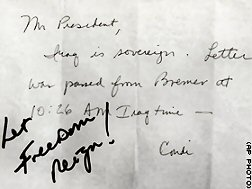 Mr President,
Iraq is sovereign. Letter
was passed from Bremer at
10:26 AM Iraq time —
Condi
Let
Freedom
Reign!
(AP PHOTO)